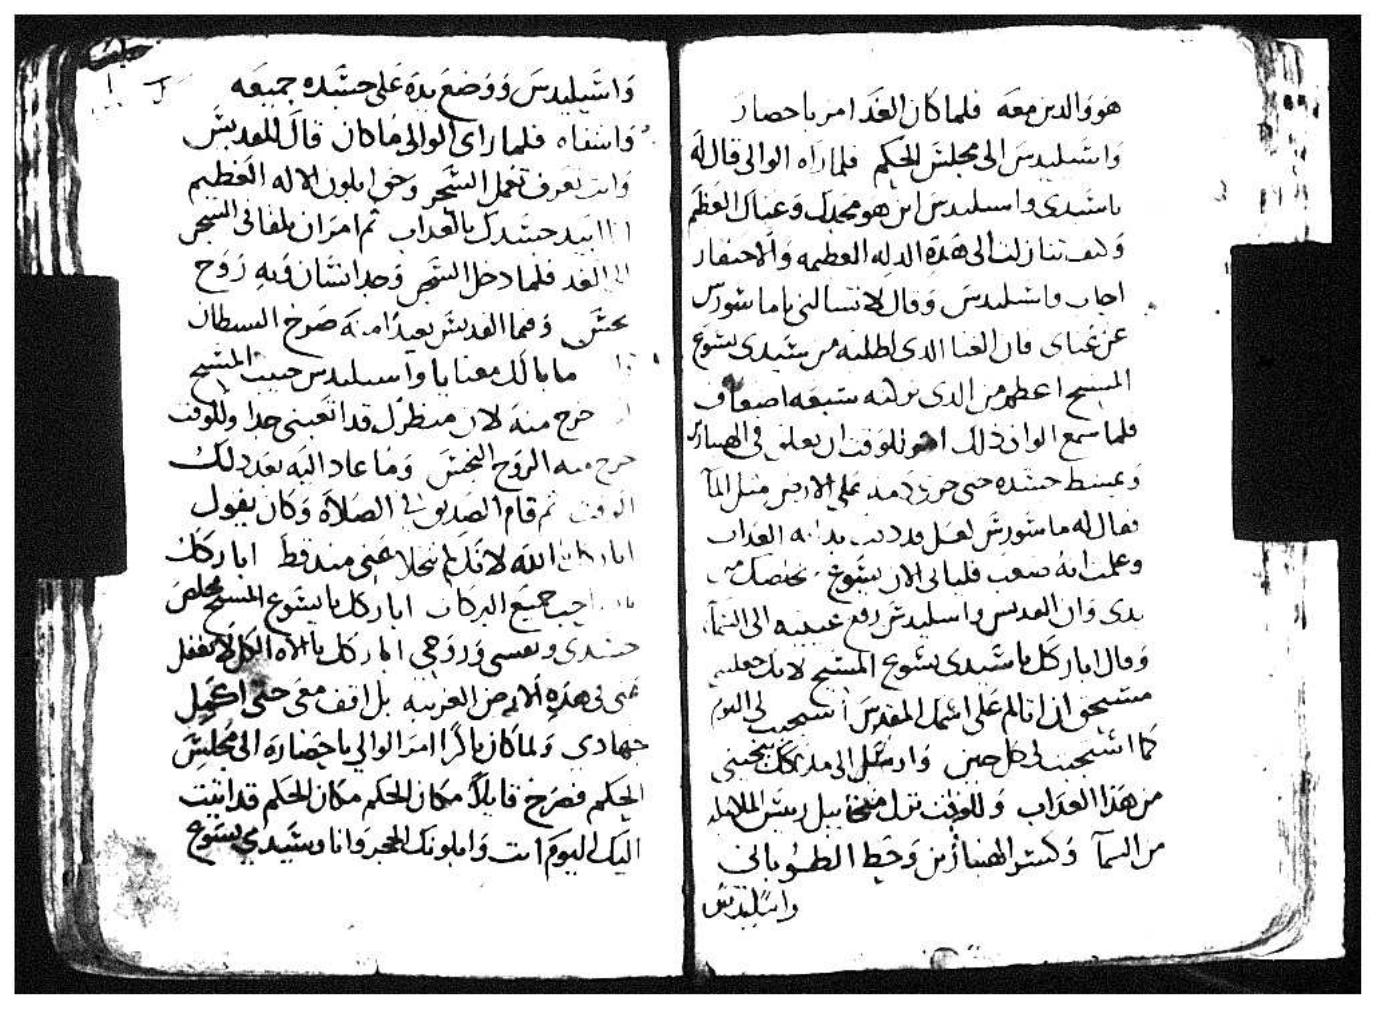 هو والدين معه فلما كان الغد امر باحضار
واسيليدس الى مجلس الحكم فلما راه الوالى قال له
ياسيدى واسيليدس اين هو مجدك وغناك العظم
وكيف تنازلت الى هذه الدله العظيمه والاحتقار
اجاب واسيليدس وقال لا تسالنى ياماسورس
عن غناى فان الغنا الدى اطلبه من سيدى يسوع
المسيح اعظم من الدى تركته سبعه اضعاف
فلما سمع الوالى ذلك امر للوقت ان يعلق فى الهنبازين
ويمشط جسده حتى جرى دمه على الارض مثل المآ
فقال له ماسورس لعل قد العداب
وعلمت انه صعب فليأتى الان يسوع يخلصك من
يدى وان القديس واسيليدس رفع عينيه الى السمآ
وقال اباركك ياسيدى يسوع المسيح لانك جعلتنى
مستحق ان اتالم على اسمك المقدس استجيب لى اليوم
كما استجيب لى كل حين وارسل الى ملاكك ينجينى
من هدا العداب وللوقت نزل ميخاييل رييس الملايكه
من السمآ وكسر الهنبازين وحط الطوبانى
واسيليدس
واسيليدس ووضع يده على جسده جميعه
واشفاه فلما راى الوالى ما كان قال للقديس
وانت تعرف تعمل السحر وحق ابلون الاله العظيم
انا ابيد جسدك بالعداب ثم امر ان يلقا فى السجن
الى الغد فلما دخل السجن وجد انسان فيه روح
نجس وفيما القديس بعيدا منه صرخ الشيطان
مابالك معنا يا واسيليدس حبيب المسيح
خرج منه لان منظرك قد اتعبنى جدا وللوقت
خرج منه الروح النجس وما عاد اليه بعد دلك
الوقت ثم قام الصديق الى الصلاة وكان يقول
اباركك اللـه لانك لم تتخلا عنى مند قط اباركك
ياصاحب جميع البركات اباركك يا يسوع المسيح مخلص
جسدى ونفسى وروحى اباركك يا الاه الكل لا تغفل
عنى فى هده الارض الغريبه بل اقف معى حتى اكمل
جهادى ولما كان باكرا امر الوالى باحضاره الى مجلس
الحكم فصرخ قايلا مكان الحكم مكان الحكم قد اتيت
اليك اليوم انت وابلونك الحجر وانا وسيدى يسوع